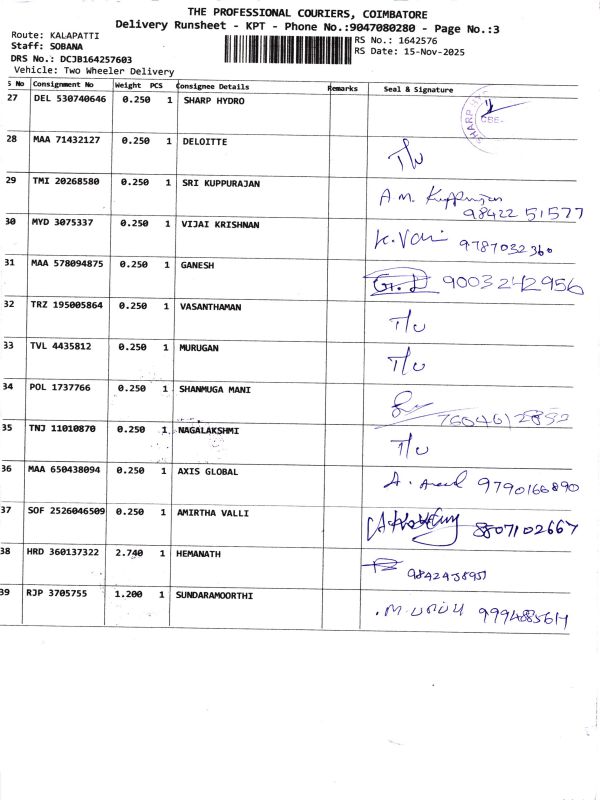 THE PROFESSIONAL COURIERS, COIMBATORE
Delivery Runsheet - KPT - Phone No.:9047080280 - Page No.:3
Route: KALAPATTI
RS No.: 1642576
Staff: SOBANA
RS Date: 15-Nov-2025
DRS No.: DCJB164257603
Vehicle: Two Wheeler Delivery
S No Consignment No Weight PCS Consignee Details Remarks Seal & Signature
27 DEL 530740646 0.250 1 SHARP HYDRO SHARP CBE-
28 MAA 71432127 0.250 1 DELOITTE T/U
29 TMI 20268580 0.250 1 SRI KUPPURAJAN A M. Kuppurajan
98422 51577
30 MYD 3075337 0.250 1 VIJAI KRISHNAN 9787032360
31 MAA 578094875 0.250 1 GANESH 9003242956
32 TRZ 195005864 0.250 1 VASANTHAMAN T/U
33 TVL 4435812 0.250 1 MURUGAN T/U
34 POL 1737766 0.250 1 SHANMUGA MANI
35 TNJ 11010870 0.250 1 NAGALAKSHMI T/U
36 MAA 650438094 0.250 1 AXIS GLOBAL 9790166890
37 SOF 2526046509 0.250 1 AMIRTHA VALLI 8807102667
38 HRD 360137322 2.740 1 HEMANATH
39 RJP 3705755 1.200 1 SUNDARAMOORTHI